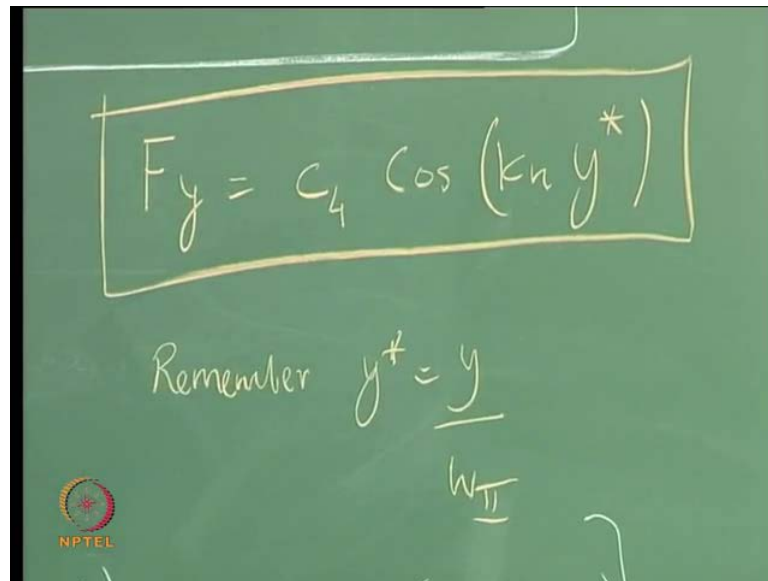 F_y = C_4 Cos (kn y*)
Remember y* = y
wπ
NPTEL